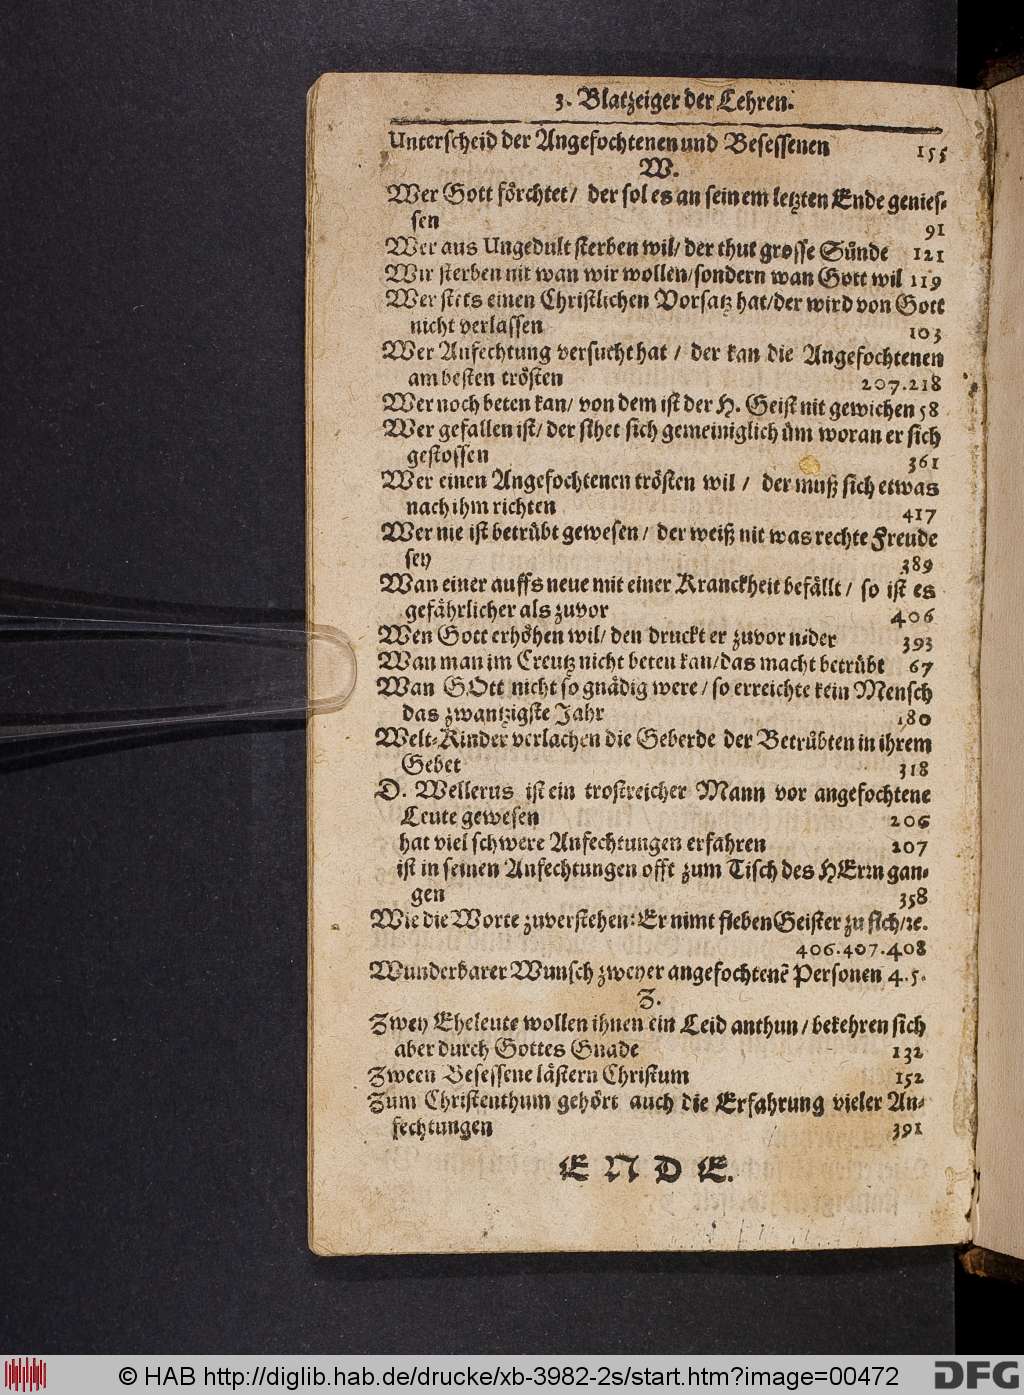 3. Blatzeiger der Lehren.
Unterscheid der Angefochtenen und Besessenen 155
W.
Wer Gott förchtet/ der sol es an seinem letzten Ende genies-
sen 91
Wer aus Ungedult sterben wil/ der thut grosse Sünde 121
Wir sterben nit wan wir wollen/ sondern wan Gott wil 119
Wer stets einen Christlichen Vorsatz hat/ der wird von Gott
nicht verlassen 103
Wer Anfechtung versucht hat / der kan die Angefochtenen
am besten trösten 207.218
Wer noch beten kan/ von dem ist der H. Geist nit gewichen 58
Wer gefallen ist/ der sihet sich gemeiniglich üm woran er sich
gestossen 361
Wer einen Angefochtenen trösten wil / der muß sich etwas
nach ihm richten 417
Wer nie ist betrübt gewesen / der weiß nit was rechte Freude
sey 389
Wan einer auffs neue mit einer Kranckheit befällt / so ist es
gefährlicher als zuvor 406
Wen Gott erhöhen wil/ den druckt er zuvor nider 393
Wan man im Creutz nicht beten kan/ das macht betrübt 67
Wan GOtt nicht so gnädig were / so erreichte kein Mensch
das zwantzigste Jahr 180
Welt-Kinder verlachen die Geberde der Betrübten in ihrem
Gebet 318
D. Wellerus ist ein trostreicher Mann vor angefochtene
Leute gewesen 206
hat viel schwere Anfechtungen erfahren 207
ist in seinen Anfechtungen offt zum Tisch des HErrn gan-
gen 358
Wie die Worte zuverstehen: Er nimt sieben Geister zu sich/ ꝛc.
406.407.408
Wunderbarer Wunsch zweyer angefochtenẽ Personen 4.5.
Z.
Zwey Eheleute wollen ihnen ein Leid anthun / bekehren sich
aber durch Gottes Gnade 132
Zween Besessene lästern Christum 152
Zum Christenthum gehört auch die Erfahrung vieler An-
fechtungen 391
ENDE.
© HAB http://diglib.hab.de/drucke/xb-3982-2s/start.htm?image=00472
DFG
diglib